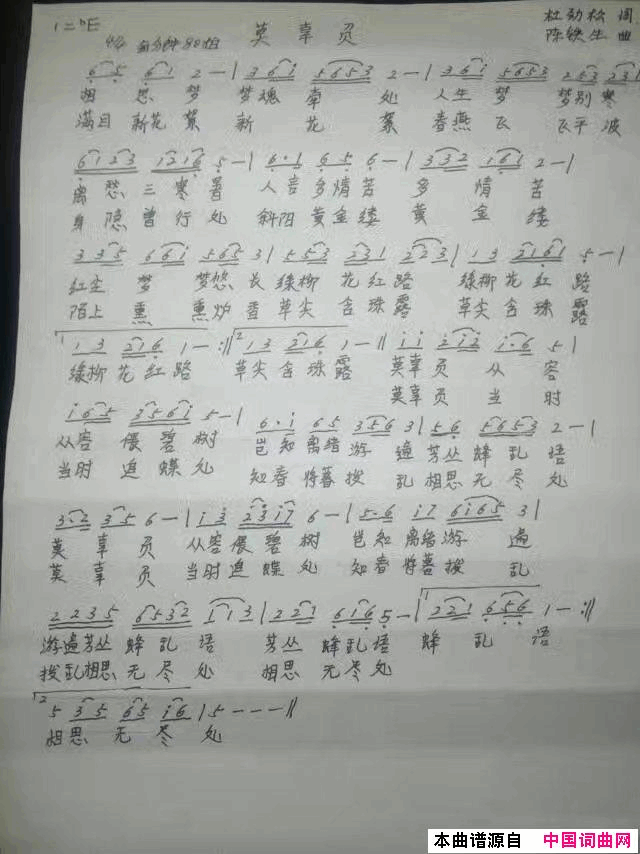 1=bE
4/4 每分钟80拍
莫辜负
杜劲松 词
陈铁生 曲
6 5 6 1 2 - | 3 6 i 5 6 5 3 2 - | 3 6 i 5 6 5 3 2 5 3 2 3 1 |
相 思 梦 梦魂 牵 处 人生 梦 梦别 寒
满目 新花 絮 新 花 絮 春燕 飞 飞平 波
6 1 2 3 1 2 1 6 5 - | 6 · 1 6 5 6 - | 3 3 2 1 6 1 2 - |
离 愁 三 寒 暑 人言 多情 苦 多 情 苦
身 隐 曾 行 处 斜阳 黄金 缕 黄 金 缕
3 3 5 6 6 i 5 6 5 3 | 5 5 3 2 3 1 2 2 3 | 1 3 2 1 6 1 5 - |
红尘 梦 梦悠 长 绿柳 花 红 路 绿柳 花 红 路
陌上 熏 熏炉 香 草尖 含 珠 露 草尖 含 珠 露
1 3 2 1 6 1 - :‖ 1 3 2 1 6 1 - ‖ i i 2 i 2 i · 6 5 |
绿柳 花 红 路 草尖 含 珠 露 莫辜 负 从 容
莫辜 负 当 时
i 6 5 3 5 6 i 5 - | 6 · i 6 5 3 5 6 3 | 5 6 5 6 5 3 2 - |
从容 偎 碧 树 岂知 离绪 游 遍 芳丛 蜂 乱 语
当时 追 蝶 处 知春 将暮 拨 乱 相思 无 尽 处
3 · 2 3 5 6 - | i 3 2 3 i 7 6 - | 5 · 6 i 7 6 i 6 5 3 |
莫 辜 负 从容 偎 碧 树 岂知 离绪 游 遍
莫 辜 负 当时 追 蝶 处 知春 将暮 拨 乱
2 2 3 5 6 5 3 2 1 1 3 | 2 2 1 6 1 6 5 - | 2 2 1 6 5 6 1 - :‖
游遍 芳丛 蜂 乱 语 芳丛 蜂 乱 语 蜂 乱 语
拨乱 相思 无 尽 处 相思 无 尽 处
5 3 5 6 5 i 6 | 5 - - - ‖
相思 无 尽 处
本曲谱源自 中国词曲网